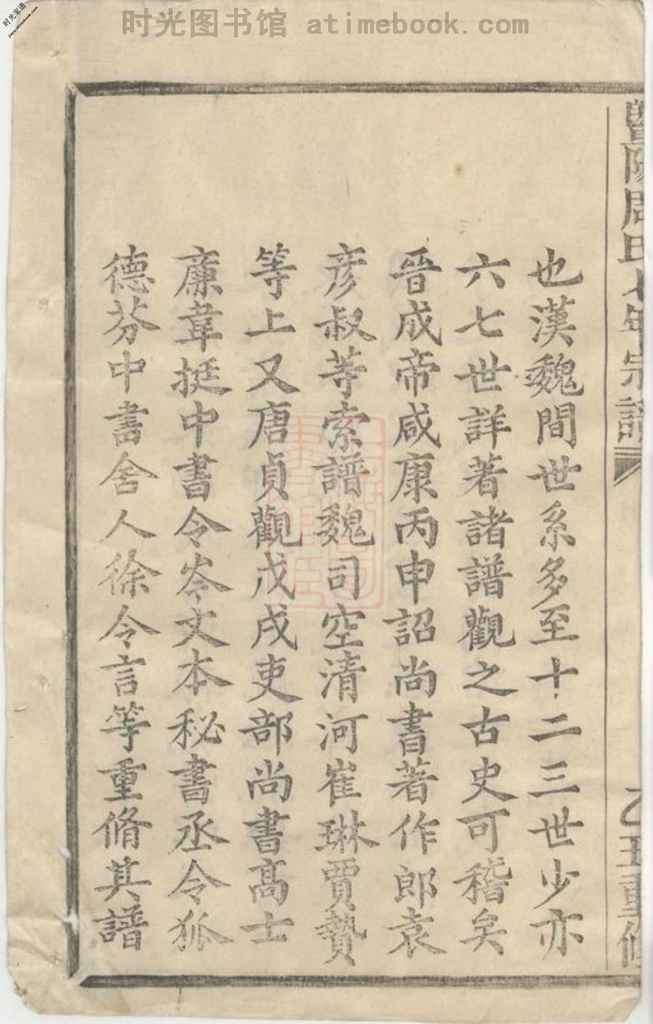 时光图书馆 atimebook.com
暨陽周氏 宗譜
乙丑重修
也漢魏間世系多至十二三世少亦
六七世詳著諸譜觀之古史可稽矣
晉成帝咸康丙申詔尚書著作郎袁
彦叔等索譜魏司空清河崔琳賈贄
等上又唐貞觀戊戌吏部尚書髙士
亷韋挺中書令岑文本秘書丞令狐
德芬中書舍人徐令言等重脩其譜